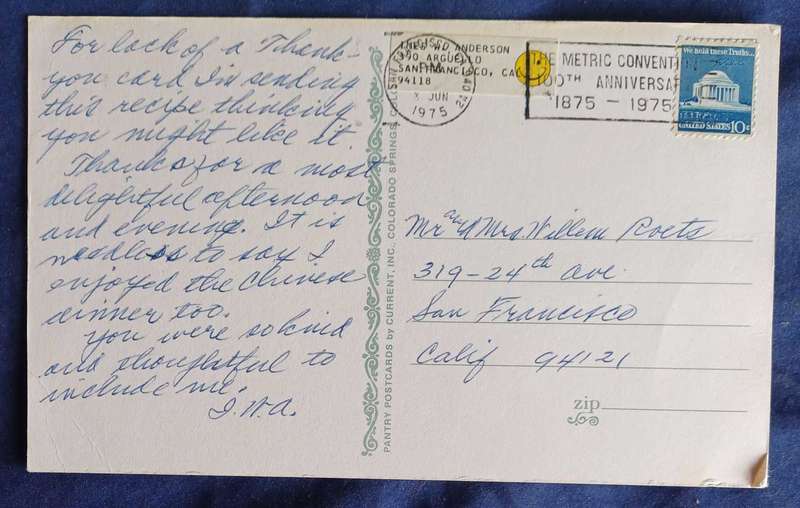 For lack of a Thank-
you card I'm sending
this recipe thinking
you might like it.
Thanks for a most
delightful afternoon
and evening. It is
needless to say I
enjoyed the Chinese
dinner too.
You were so kind
and thoughtful to
include me.
I.W.A.
PANTRY POSTCARDS by CURRENT, INC. COLORADO SPRINGS,
W. ANDERSON
390 ARGUELLO
SAN FRANCISCO, CA
94118
SAN FRANCISCO
PM
3 JUN
1975
THE METRIC CONVENTI
100TH ANNIVERSA
1875 - 1975
We hold these Truths...
UNITED STATES 10c
Mr and Mrs. Willem Roets
319-24th Ave.
San Francisco
Calif 94121
zip